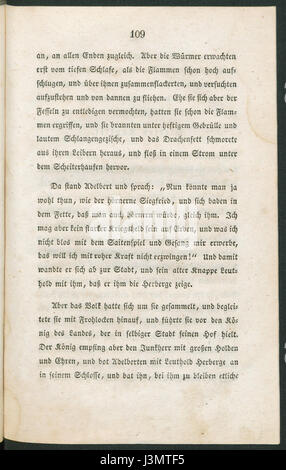 109
an, an allen Enden zugleich. Aber die Würmer erwachten
erst vom tiefen Schlafe, als die Flammen schon hoch auf-
schlugen, und über ihnen zusammenflackerten, und versuchten
aufzustehen und von dannen zu fliehen. Ehe sie sich aber der
Fesseln zu entledigen vermochten, hatten sie schon die Flam-
men ergriffen, und sie brannten unter heftigem Gebrülle und
lautem Schlangengezische, und das Drachenfett schmorete
aus ihren Leibern heraus, und floß in einem Strom unter
dem Scheiterhaufen hervor.
Da stand Adelbert und sprach: „Nun könnte man ja
wohl thun, wie der hörnerne Siegfried, und sich baden in
dem Fette, daß man auch hörnern würde, gleich ihm. Ich
mag aber kein starker Kriegsheld sein auf Erden, und was ich
nicht blos mit dem Saitenspiel und Gesang mir erwerbe,
das will ich mit roher Kraft nicht erzwingen!“ Und damit
wandte er sich ab zur Stadt, und sein alter Knappe Leut-
hold mit ihm, daß er ihm die Herberge zeige.
Aber das Volk hatte sich um sie gesammelt, und beglei-
tete sie mit Frohlocken hinauf, und führte sie vor den Kö-
nig des Landes, der in selbiger Stadt seinen Hof hielt.
Der König empfing aber den Junkherr mit großen Holden
und Ehren, und bot Adelberten mit Leuthold Herberge an
in seinem Schlosse, und bat ihn, bei ihm zu bleiben etliche
alamy
alamy
Image ID: J3MTF5
www.alamy.com